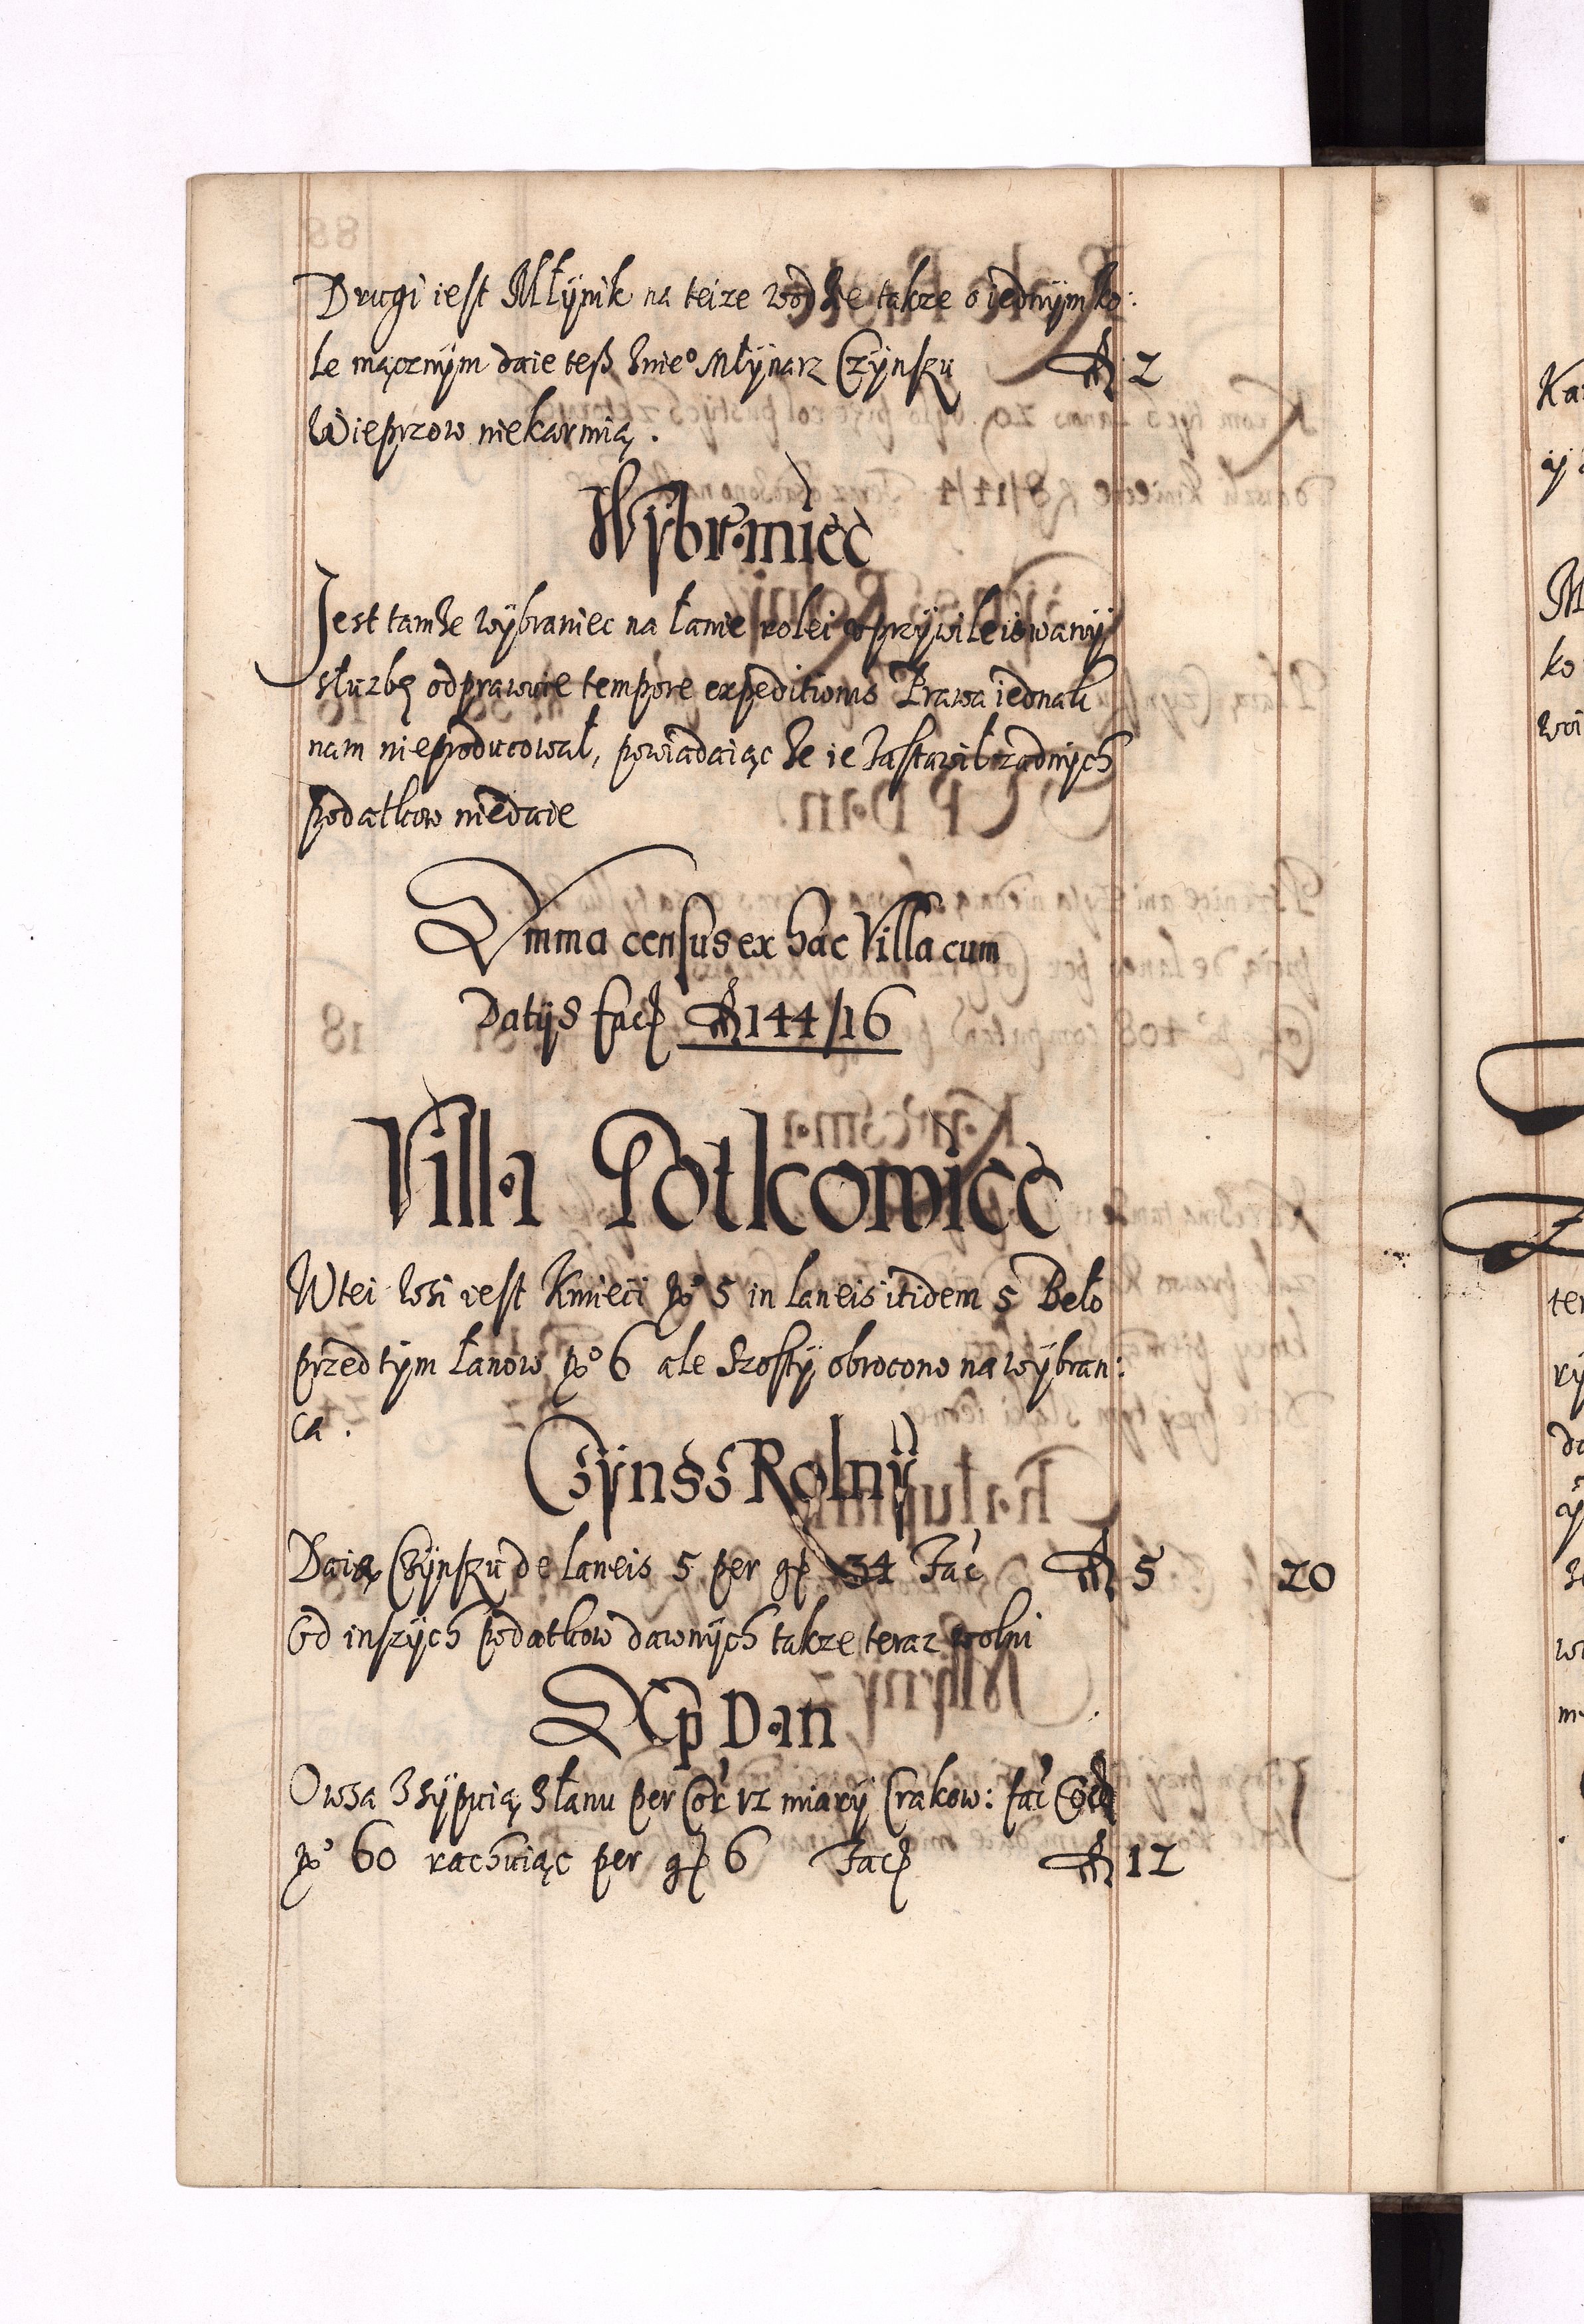 Drugi iest Młÿnik na teize wodzie takze o iednÿm ko:
le mącznÿm daie teß znieº Młÿnarz Czÿnszu fl 2
Wieprzow niekarmią.
Wÿbraniec
Jest tamże wÿbraniec na łanie rolei uprzÿwileiowanÿ
służbę odprawuie tempore expeditionis Prawa iednak
nam nieproducował, powiadaiąc że ie zastawił żadnÿch
podatkow niedaie
Summa census ex hac Villa cum
Datijs facit fl 144/16
Villa Potkowice
W tei wsi iest Kmieci Nº 5 in laneis itidem 5 Beło
przed tÿm łanow Nº 6 ale szostÿ obrocono na wÿbran:
ca.
Czÿnss Rolnÿ
Daią Czÿnszu de laneis 5 per gr 34 Fac̃ fl 5 20
Od inszÿch podatkow dawnÿch takze teraz wolni
Sep Dan
Owsa Zsÿpuią Złanu per Cor 12 miarÿ Crakow: fac̃ Cor
Nº 60 rachuiąc per gr 6 Facit fl 12